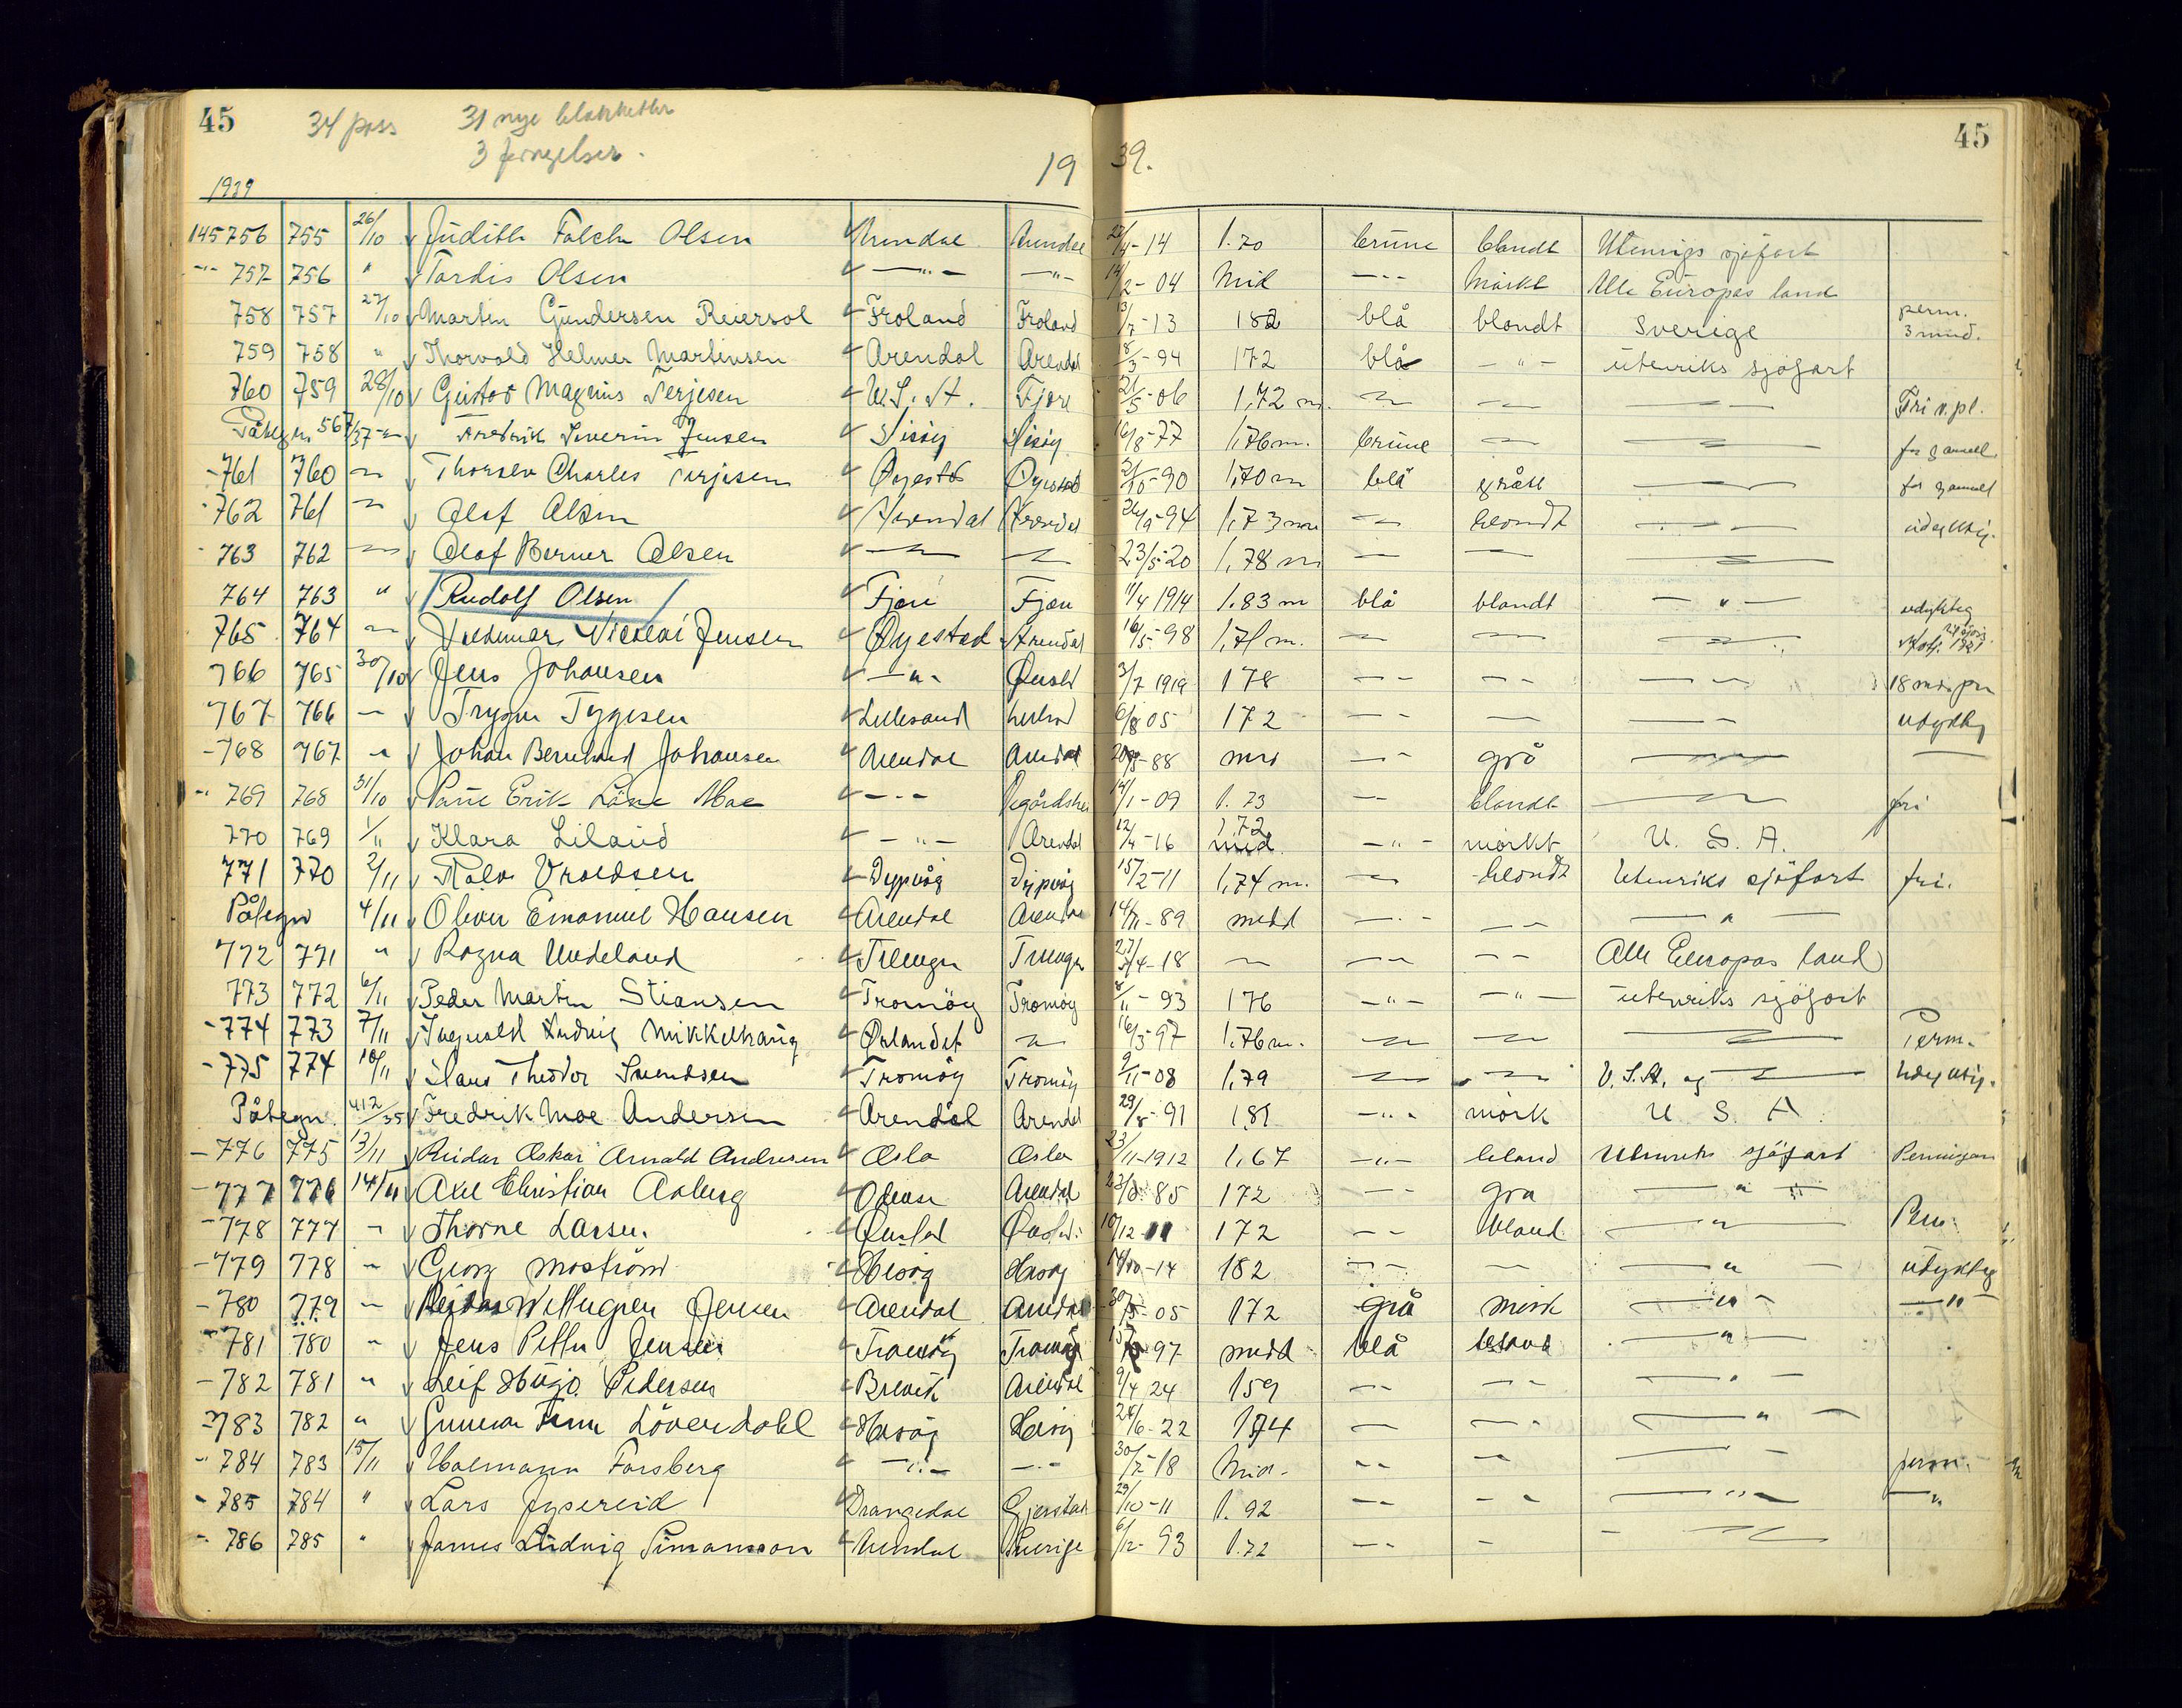 45 34 pass 31 nye blanketter 45
3 fornyelser.
1939 19 39.
145756 755 26/10 Judith Falch Olsen Arendal Arendal 22/4-14 1.70 brune blondt Utenrigs sjöfart
-"- 757 756 " Tordis Olsen -"- -"- 14/2-04 Mid -"- Mörkt Alle Europas land
758 757 27/10 Martin Gundersen Reiersöl Froland Froland 13/7-13 182 blå blondt Sverige perm. 3 mnd.
759 758 " Thorvald Helmer Martinsen Arendal Arendal 18/3-94 172 blå -"- utenriks sjöfart
760 759 28/10 Gustav Magnus Terjesen U.S.A. Fjære 21/5-06 1,72 m. -"- -"- -"- Fri v.pl.
Påtegn 567/37 -"- Fredrik Severin Jensen Hisöy Hisöy 16/8-77 1,76 m. brune -"- -"- for gammel
-761 760 -"- Thorlev Charles Terjesen Øyestad Øyestad 21/10-90 1,70 m blå grått -"- for gammel
-762 761 -"- Olaf Olsen Arendal Arendal 26/9-94 1,73 m -"- blondt -"- udyktig.
-763 762 -"- Olaf Berner Olsen -"- -"- 23/5-20 1,78 m -"- -"- -"-
764 763 " Rudolf Olsen Fjære Fjære 11/4 1914 1.83 m blå blondt -"- udyktig
765 764 -"- Valdemar Nicolai Jensen Øyestad Arendal 16/5-98 1,71 m. -"- -"- -"-
766 765 30/10 Jens Johansen -"- Øiestad 3/7 1919 178 -"- -"- -"- 18 mdr. per
767 766 -"- Trygve Tygesen Lillesand Lillesand 6/8 05 172 -"- -"- -"- udyktig
-768 767 -"- Johan Bernhard Johansen Arendal Arendal 20/8-88 mid -"- grå -"- —
-"- 769 768 31/10 Erik Moe -"- Vegårdshei 14/1-09 1.73 -"- blondt -"- fri
770 769 1/11 Klara Liland -"- Arendal 12/4-16 1,72 mid. -"- mörkt U. S. A.
771 770 2/11 Rolv Vroldsen Dypvåg Dypvåg 15/2-11 1,74 m. -"- blondt Utenriks sjöfart fri.
Påtegn 4/11 Oliver Emanuel Hansen Arendal Arendal 14/11-89 midd -"- -"- -"-
772 771 " Ragna Undeland Treungen Treungen 27/4-18 -"- -"- -"- Alle Europas land
773 772 6/11 Peder Martin Stiansen Tromöy Tromöy 8/11-93 176 -"- -"- utenriks sjöfart
-774 773 7/11 Ingvald Ludvig Mikkelhaug Ørlandet -"- 16/3-97 1,76 m. -"- -"- -"- Perm.
-775 774 10/11 Hans Theodor Svendsen Tromöy Tromöy 9/11-08 1,79 -"- -"- U.S.A. og -"- Udyktig.
Påtegn. 412/35 Fredrik Moe Andersen Arendal Arendal 29/8-91 181 -"- mörk U S A
-776 775 13/11 Reidar Oskar Arnold Andresen Oslo Oslo 23/11-1912 1,67 -"- blond Utenriks sjöfart Permisjon
-777 776 14/11 Axel Christian Aaberg Odense Arendal 23/8 85 172 -"- grå -"-
-778 777 -"- Thorne Larsen Øiestad Øiestad 10/12-11 172 -"- blond -"- Perm.
-779 778 -"- Georg Moström Hisöy Hisöy 14/10-14 182 -"- -"- -"- udyktig
-780 779 -"- Reidar Wettergren Jensen Arendal Arendal 30/5-05 172 grå mörk -"- -"-
-"- 781 780 -"- Jens Petter Jensen Tromöy Tromöy 97 midd blå blond -"-
-782 781 -"- Leif Hugo Pedersen Brevik Arendal 9/4 24 159 -"- -"- -"-
-783 782 -"- Gunnar Finn Löverdahl Hisöy Hisöy 26/6-22 174 -"- -"- -"-
-"- 784 783 15/11 Halmann Forsberg -"- -"- 30/7-18 Mid. -"- -"- -"- perm.
-785 784 " Lars Jysereid Drangedal Gjerstad 29/10-11 1.92 -"- -"- -"- -"-
-786 785 " James Ludvig Simonsson Arendal Sverige 6/12-93 1.72 -"- - -"-